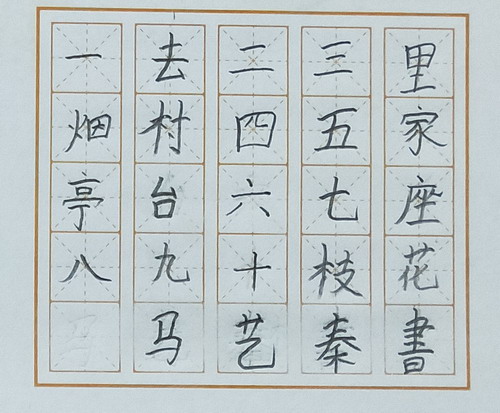 一去二三里
烟村四五家
亭台六七座
八九十枝花
马艺秦書